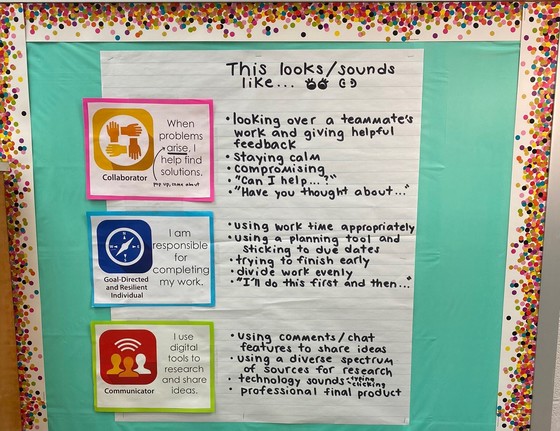 This looks/sounds
like...
When
problems
arise, I
help find
solutions.
pop up, come about
Collaborator
• looking over a teammate's
work and giving helpful
feedback
• staying calm
• compromising
• "Can I help...?"
• "Have you thought about..."
I am
responsible
for
completing
my work.
Goal-Directed
and Resilient
Individual
• using work time appropriately
• using a planning tool and
sticking to due dates
• trying to finish early
• divide work evenly
• "I'll do this first and then..."
I use
digital
tools to
research
and share
ideas.
Communicator
• using comments/chat
features to share ideas
• using a diverse spectrum
of sources for research
• technology sounds: typing
clicking
• professional final product